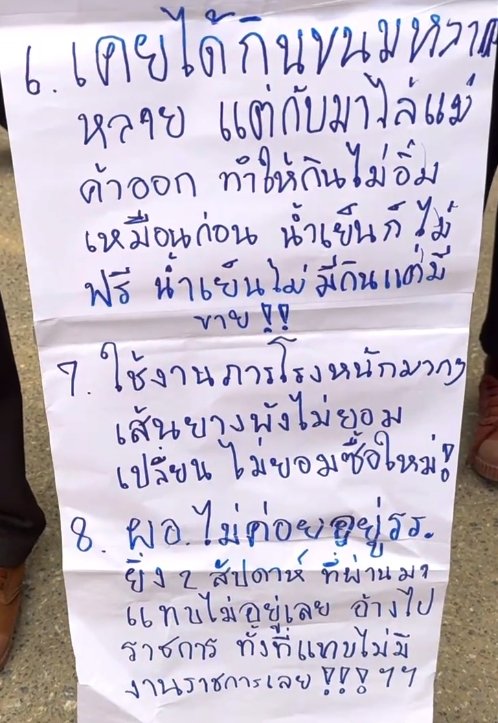 6. เคยได้กินขนมหลาก
หลาย แต่กับมาไล่แม่
ค้าออก ทำให้กินไม่อิ่ม
เหมือนก่อน น้ำเย็นก็ ไม่
ฟรี น้ำเย็นไม่ มีกินแต่มี
ขาย !!
7. ใช้งานภารโรงหนักมากๆ
เส้นยางพังไม่ยอม
เปลี่ยน ไม่ยอมซื้อใหม่!
8. ผอ. ไม่ค่อยอยู่รร.
ยิ่ง 2 สัปดาห์ ที่ผ่านมา
แทบไม่อยู่เลย อ้างไป
ราชการ ทั้งที่แทบไม่มี
งานราชการเลย !!! ๆๆ